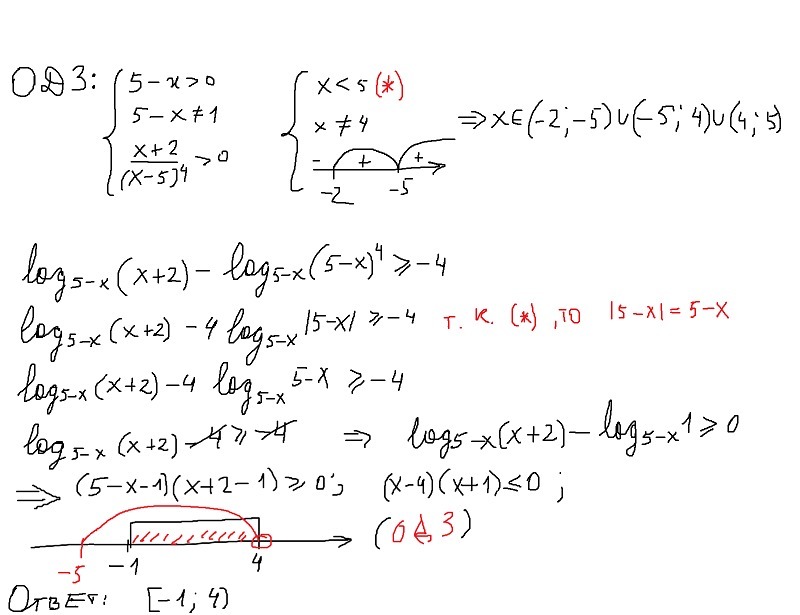 ОДЗ: { 5-x>0 { x<5 (*)
5-x≠1 x≠4 ⇒ x∈(-2;-5)∪(-5;4)∪(4;5)
(x+2)/(x-5)^4 > 0 - + +
-2 -5
log_{5-x}(x+2) - log_{5-x}(5-x)^4 ≥ -4
log_{5-x}(x+2) - 4 log_{5-x}|5-x| ≥ -4 т. к. (*), то |5-x| = 5-x
log_{5-x}(x+2) - 4 log_{5-x} 5-x ≥ -4
log_{5-x}(x+2) - 4 ≥ -4 ⇒ log_{5-x}(x+2) - log_{5-x} 1 ≥ 0
⇒ (5-x-1)(x+2-1) ≥ 0; (x-4)(x+1) ≤ 0;
-5 -1 4 (ОДЗ)
Ответ: [-1; 4)